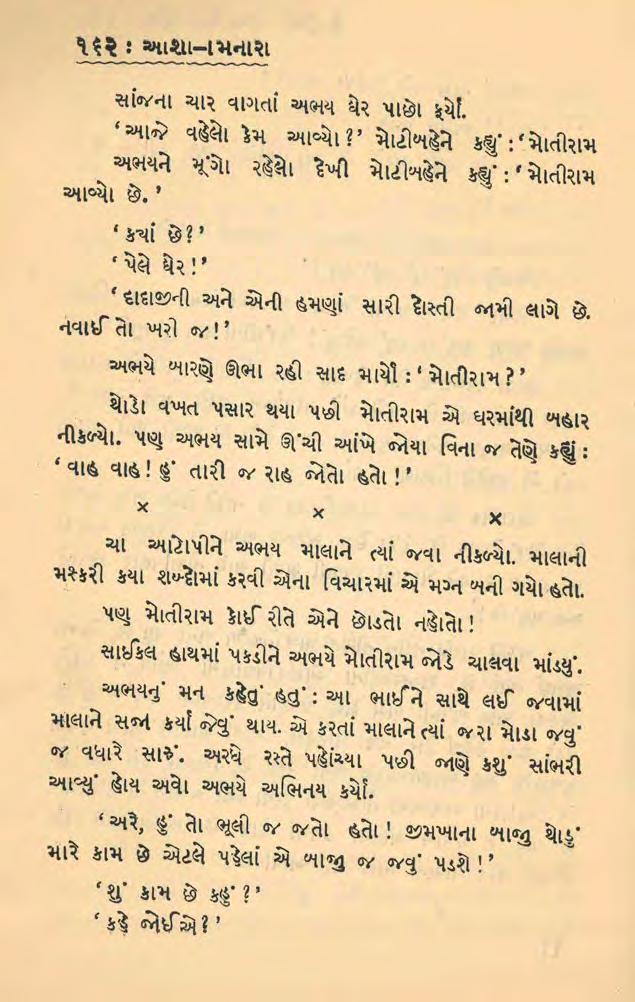 ૧૬૨ : આશા–મિનારા
સાંજના ચાર વાગતાં અભય ઘેર પાછો ફર્યો.
‘આજે વહેલો કેમ આવ્યો?’ મોટીબહેને કહ્યું : ‘મોતીરામ
અભયને મૂંગો રહેલો દેખી મોટીબહેને કહ્યું : ‘મોતીરામ
આવ્યો છે.’
‘ક્યાં છે?’
‘પેલે ઘેર!’
‘દાદાજીની અને એની હમણાં સારી દોસ્તી જામી લાગે છે.
નવાઈ તો ખરી જ!’
અભયે બારણે ઊભા રહી સાદ માર્યો : ‘મોતીરામ?’
થોડો વખત પસાર થયા પછી મોતીરામ એ ઘરમાંથી બહાર
નીકળ્યો. પણ અભય સામે ઊંચી આંખે જોયા વિના જ તેણે કહ્યું :
‘વાહ વાહ! હું તારી જ રાહ જોતો હતો!’
× × ×
ચા આટોપીને અભય માલાને ત્યાં જવા નીકળ્યો. માલાની
મશ્કરી કયા શબ્દોમાં કરવી એના વિચારમાં એ મગ્ન બની ગયો હતો.
પણ મોતીરામ કોઈ રીતે એને છોડતો નહોતો!
સાઈકલ હાથમાં પકડીને અભયે મોતીરામ જોડે ચાલવા માંડ્યું.
અભયનું મન કહેતું હતું : આ ભાઈને સાથે લઈ જવામાં
માલાને સજા કર્યા જેવું થાય. એ કરતાં માલાને ત્યાં જરા મોડા જવું
જ વધારે સારું. અરધે રસ્તે પહોંચ્યા પછી જાણે કશું સાંભરી
આવ્યું હોય અવો અભયે અભિનય કર્યો.
‘અરે, હું તો ભૂલી જ જતો હતો! જીમખાના બાજુ થોડું
મારે કામ છે એટલે પહેલાં એ બાજુ જ જવું પડશે!’
‘શું કામ છે કહું?’
‘કહે જોઈએ?’